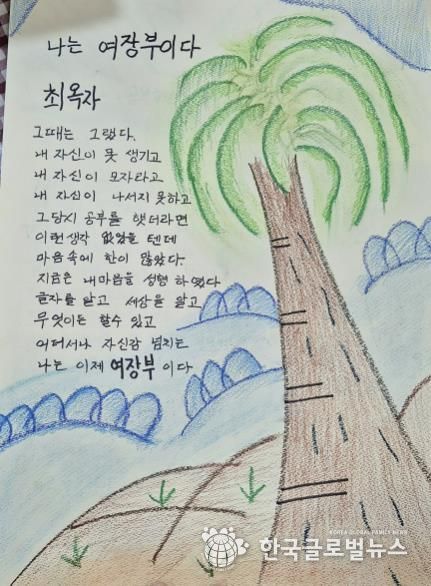 나는 여장부이다
최옥자
그때는 그랬다.
내 자신이 못 생기고
내 자신이 모자라고
내 자신이 나서지 못하고
그당시 공부를 햇더라면
이런생각 없었을 텐데
마음속에 한이 많았다.
지금은 내마음을 성형 하였다
글자를 알고 세상을 알고
무엇이든 할수 있고
어디서나 자신감 넘치는
나는 이제 여장부 이다
KOREA GLOBAL FAMILY NEWS
한국글로벌뉴스